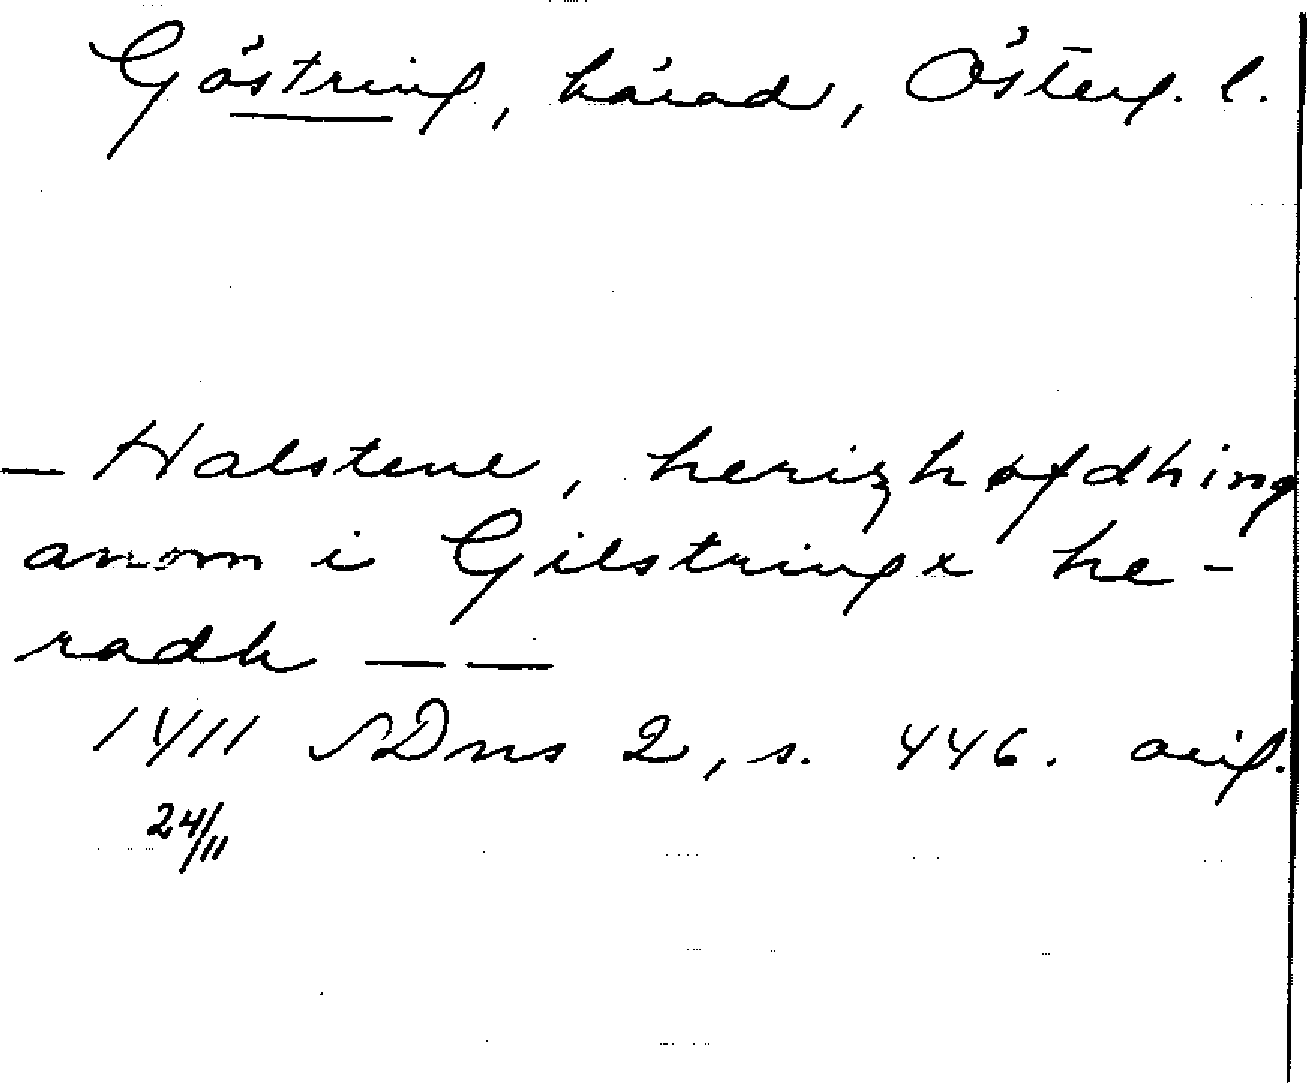 Göstring, härad, Österg. l.
— Halstene, herizhøfdhing
anom i Gilstringx he-
radh — —
1411 SDns 2, s. 446. orig.
24/11